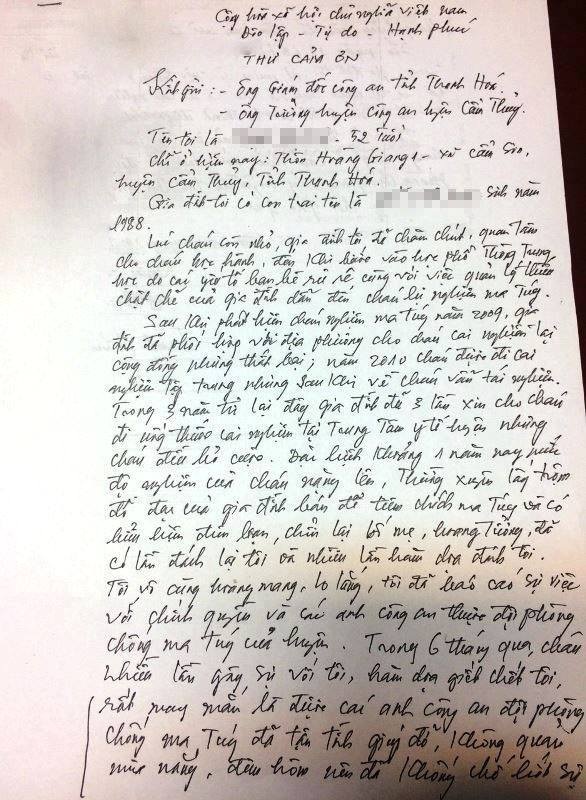 Cộng hòa xã hội chủ nghĩa việt nam
Độc lập - Tự do - Hạnh phúc
THƯ CẢM ƠN
Kính gửi: - Ông Giám đốc công an tỉnh Thanh Hóa.
- Ông Trưởng huyện công an huyện Cẩm Thủy.
Tên tôi là - 52 tuổi
chỗ ở hiện nay: Thôn Hoàng Giang 1 - xã cẩm Sơn,
huyện Cẩm Thủy, Tỉnh Thanh Hóa.
Gia đình tôi có con trai tên là sinh năm
1988.
Lúc cháu còn nhỏ, gia đình tôi đã chăm chút, quan tâm
cho cháu học hành, đến khi bước vào học phổ Thông Trung
học do các yếu tố bạn bè rủ rê cùng với việc quản lý thiếu
chặt chẽ của gia đình dẫn đến cháu bị nghiện ma túy.
Sau khi phát hiện cháu nghiện ma túy năm 2009, gia
đình đã phối hợp với địa phương cho cháu cai nghiện tại
cộng đồng nhưng thất bại; năm 2010 cháu được đi cai
nghiện tập trung nhưng sau khi về cháu vẫn tái nghiện.
Trong 3 năm trở lại đây gia đình đã 3 lần xin cho cháu
đi uống thuốc cai nghiện tại Trung Tâm y tế huyện nhưng
cháu đều bỏ cuộc. Đặc biệt khoảng 1 năm nay mức
độ nghiện của cháu nặng lên, Thường xuyên lấy trộm
đồ đạc của gia đình bán để tiêm chích ma túy và có
biểu hiện điên loạn, chửi lại bố mẹ, hoang tưởng, đã
có lần đánh lại tôi và nhiều lần hăm dọa đánh tôi.
Tôi vô cùng hoang mang, lo lắng, tôi đã báo cáo sự việc
với chính quyền và các anh công an thuộc đội phòng
chống ma túy của huyện. Trong 6 tháng qua, cháu
nhiều lần gây sự với tôi, hăm dọa giết chết tôi,
rất may mắn là được các anh công an đội phòng
chống ma túy đã tận tình giúp đỡ, không quản
mưa nắng, đêm hôm nên đã khống chế hết sự